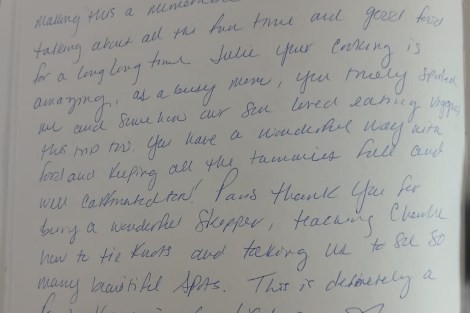 making this a
talking about all the fun time and good food
for a long long time Julie your cooking is
amazing, as a busy mom, you truly spoiled
me and somehow our son loved eating veggies
this trip too. You have a wonderful way with
food and keeping all the tummies full and
well
thank you for
being a wonderful Skipper, teaching Charlie
how to tie knots and taking us to see so
many beautiful spots. This is definetely a